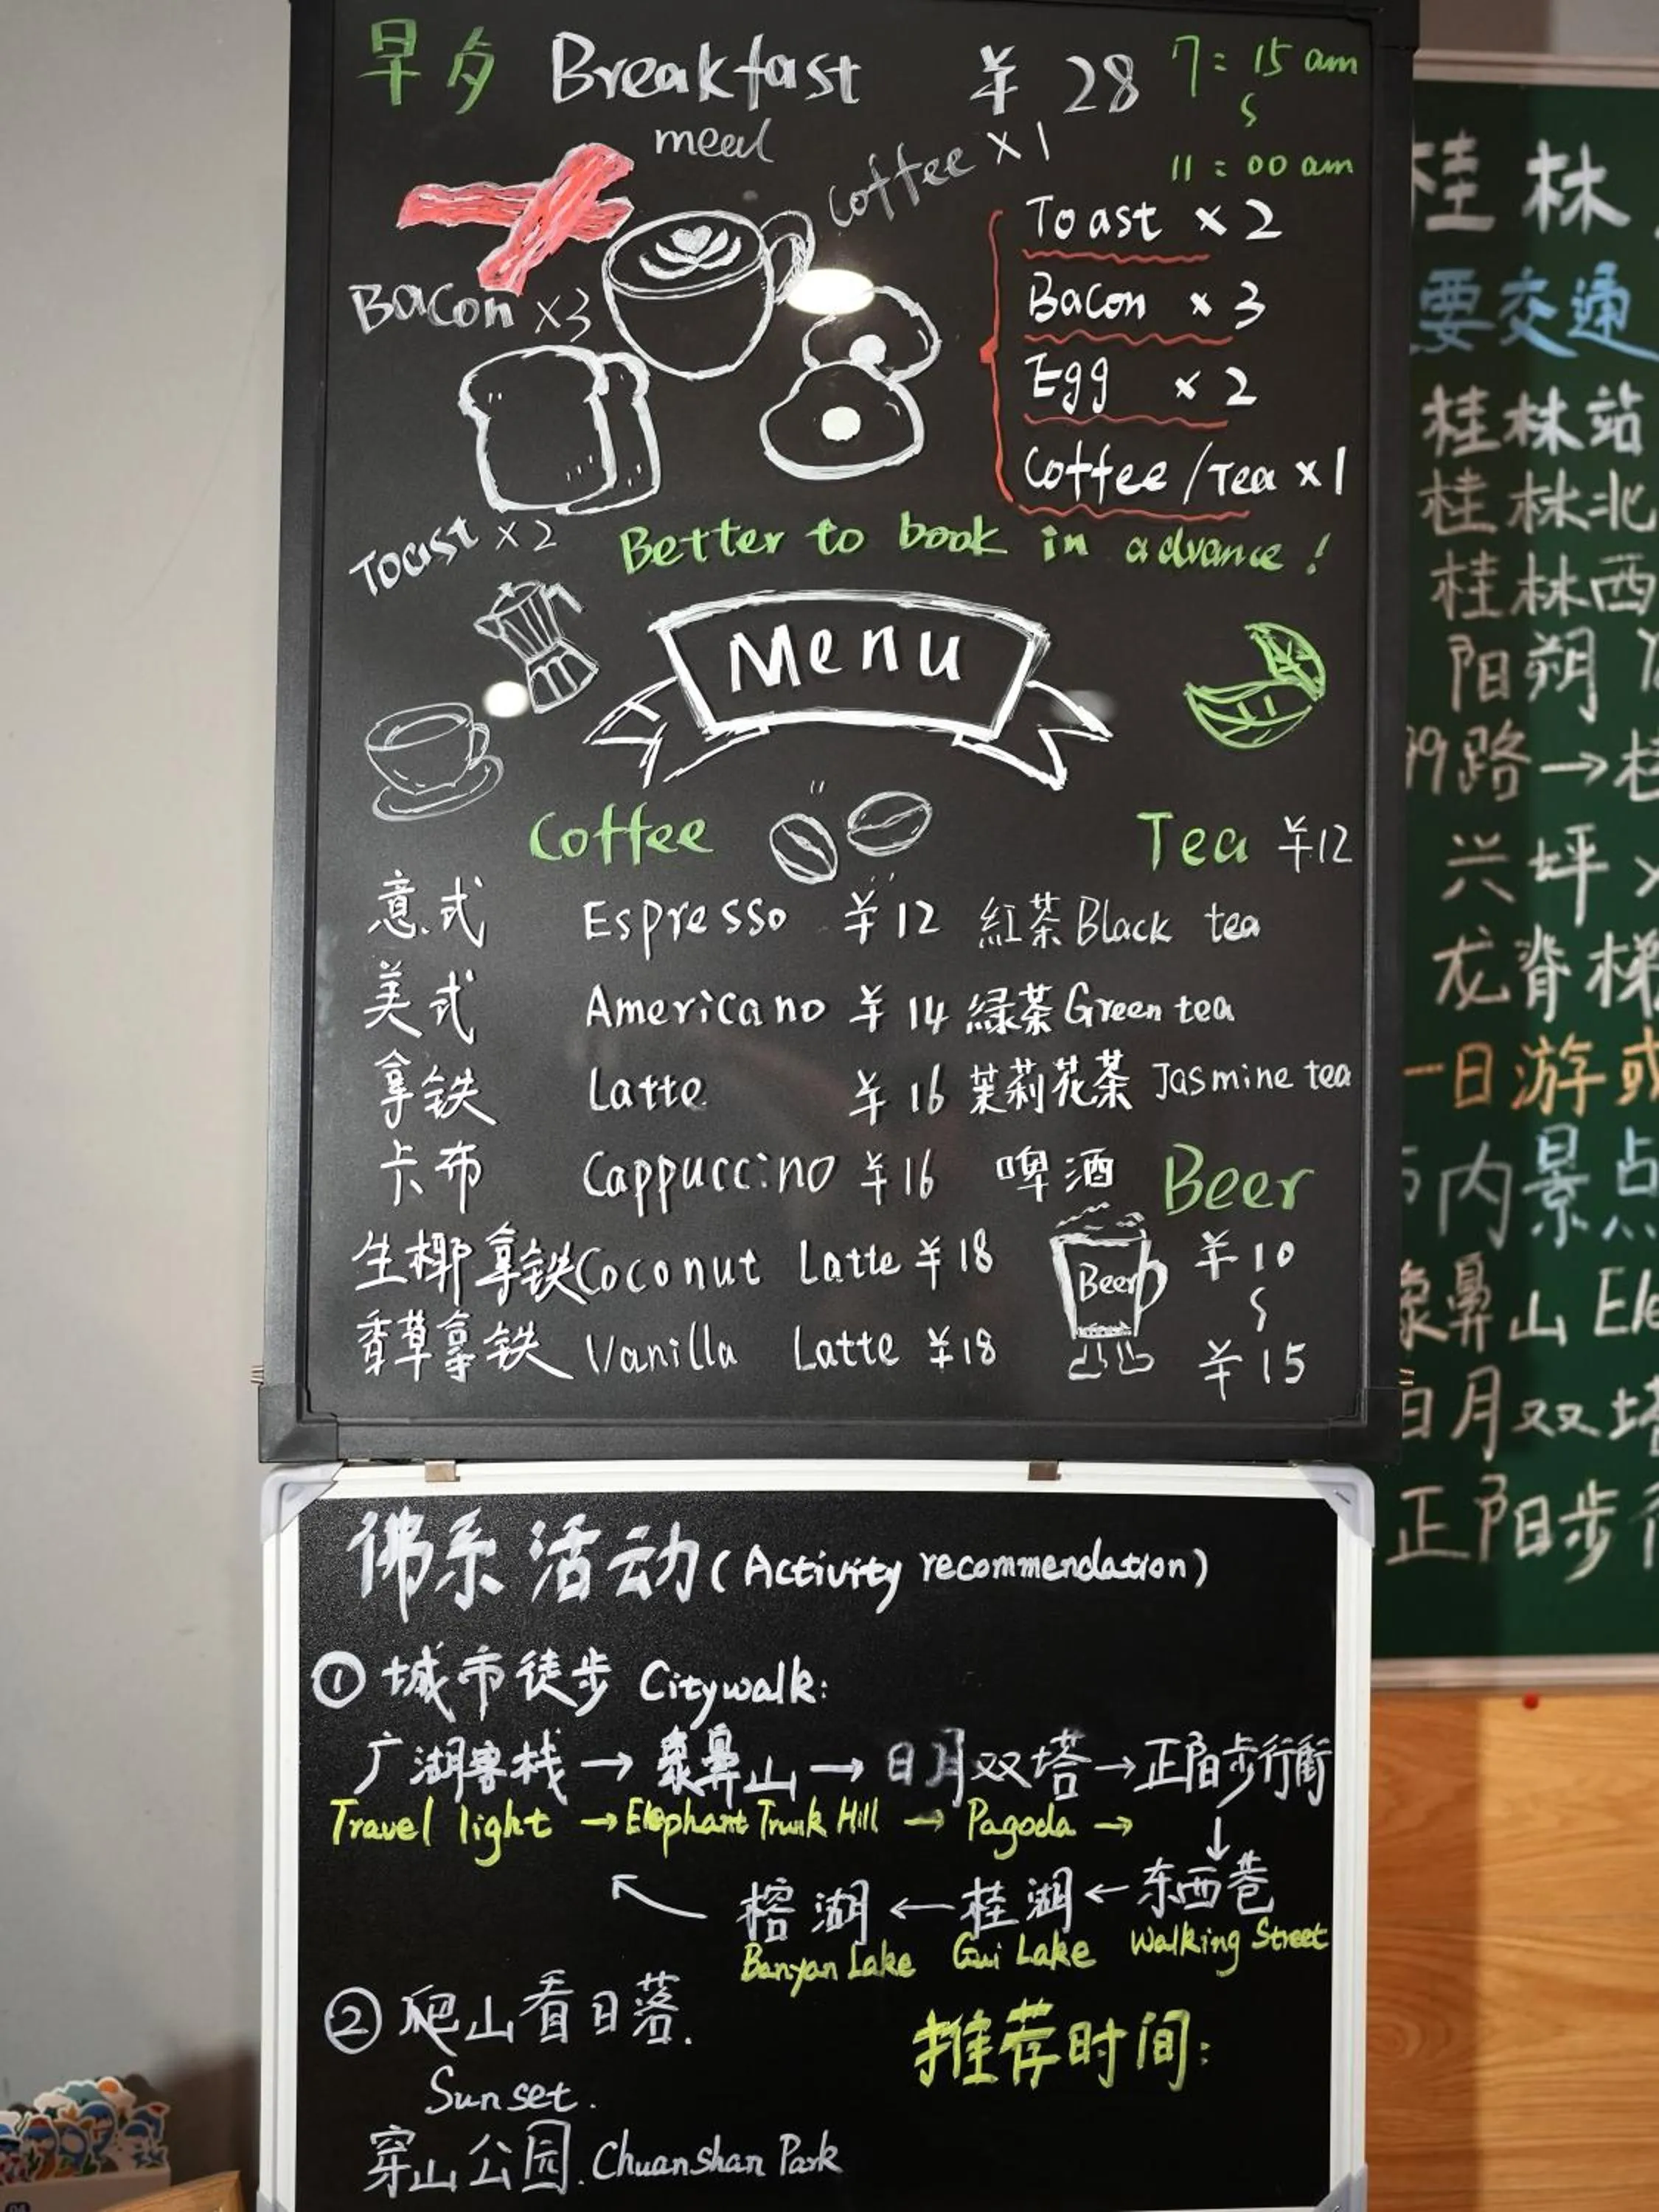 早夕 Breakfast ¥ 28 7:15 am
meal
S
11:00 am
coffee × 1
Toast × 2
Bacon × 3
Egg × 2
Coffee / Tea × 1
Bacon × 3
Toast × 2
Better to book in advance !
Menu
Coffee
Tea ¥12
意式 Espresso ¥12 紅茶 Black tea
美式 Americano ¥14 緑茶 Green tea
拿铁 Latte ¥16 茉莉花茶 Jasmine tea
卡布 Cappuccino ¥16 啤酒 Beer
生椰拿铁 Coconut Latte ¥18
Beer
¥10
S
¥15
香草拿铁 Vanilla Latte ¥18
佛系活动 (Activity recommendation)
① 城市徒步 Citywalk:
广湖客栈 → 象鼻山 → 日月双塔 → 正阳步行街
Travel light → Elephant Trunk Hill → Pagoda →
↓
榕湖 ← 桂湖 ← 东西巷
Banyan Lake Gui Lake Walking Street
② 爬山看日落.
Sunset.
推荐时间:
穿山公园. Chuanshan Park
桂林
要交通
桂林站
桂林北
桂林西
阳朔
99路 →
兴坪
龙脊梯
一日游或
内景点
象鼻山 Ele
日月双塔
正阳步行